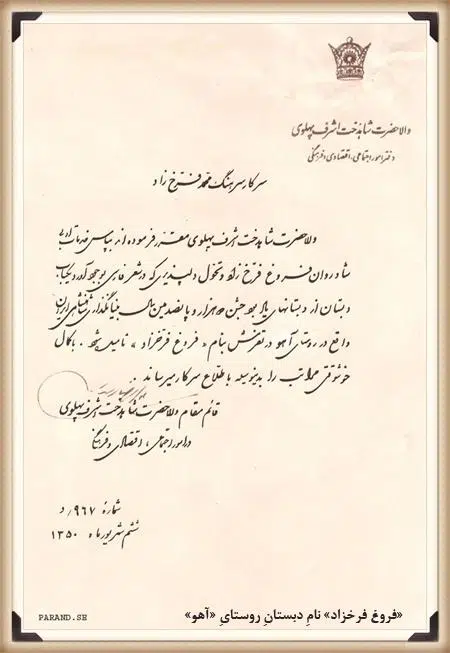 والاحضرت شاهدخت اشرف پهلوی
دفتر امور اجتماعی، اقتصادی و فرهنگی
سرکار سرهنگ محمد فرخ زاد
والاحضرت شاهدخت اشرف پهلوی مقرر فرموده‌اند بپاس خدمات ادبی
شادروان فروغ فرخ زاد و تحول دلپذیری که در شعر فارسی بوجود آورد یکباب
دبستان از دبستانهای یادبود جشن دوهزار و پانصدمین سال بنیانگذاری شاهنشاهی ایران
واقع در روستای آهو در تفرش بنام « فروغ فرخزاد » نامیده شود . با کمال
خوشوقتی مراتب را بدینوسیله باطلاع سرکار میرساند .
قائم مقام والاحضرت شاهدخت اشرف پهلوی
در امور اجتماعی، اقتصادی و فرهنگی
شمارهٔ ۹۶۷/ د
ششم شهریور ماه ۱۳۵۰
«فروغ فرخزاد» نامِ دبستانِ روستایِ «آهو»
PARAND.SE